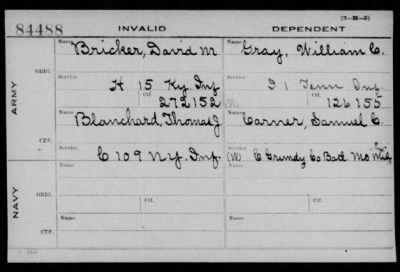 (3-H-3)
84488 INVALID DEPENDENT
ARMY
ORIG.
Name Bricker, David M Name Gray, William C.
Service H 15 Ky. Inf Service I 1 Tenn Inf.
Ctf. 272152 Ctf. 126155
CTF.
Name Blanchard, Thomas J Name Carner, Samuel C.
Service C 109 N.Y. Inf. Service (W) C Grundy Co Bat Mo
NAVY
ORIG.
Name Name
Ctf. Ctf.
CTF.
Name Name